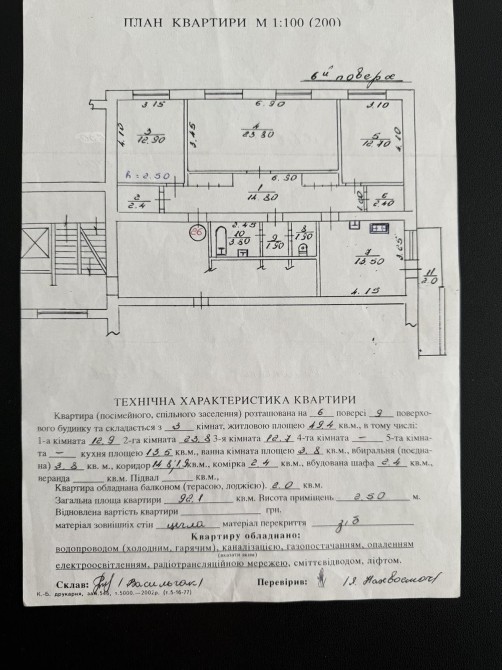 ПЛАН КВАРТИРИ М 1:100 (200)
6й поверх
3.15
6.90
3.10
4.10
3
12.90
3.45
4
23.80
5
12.70
4.10
h = 2.50
6.50
2
2.4
1
14.80
1.00
6
2.40
96
2.45
10
3.80
9
1.90
8
7
13.50
3.05
11
2.0
4.15
ТЕХНІЧНА ХАРАКТЕРИСТИКА КВАРТИРИ
Квартира (посімейного, спільного заселення) розташована на 6 поверсі 9 поверхо-
вого будинку та складається з 3 кімнат, житловою площею 49.4 кв.м., в тому числі:
1-а кімната 12,9 2-га кімната 23,8 3-я кімната 12,7 4-та кімната – 5-та кімна-
та – кухня площею 13,5 кв.м., ванна кімната площею 3,8 кв.м., вбиральня (поєдна-
на) кв. м., коридор кв.м., комірка 2.4 кв.м., вбудована шафа 2.4 кв.м.,
веранда кв.м. Підвал кв.м.,
Квартира обладнана балконом (терасою, лоджією). 2.0 кв.м.
Загальна площа квартири кв.м. Висота приміщень 2.50 м.
Відновлена вартість квартири грн.
матеріал зовнішніх стін цегла матеріал перекриття з/б
Квартиру обладнано:
водопроводом (холодним, гарячим), каналізацією, газопостачанням, опаленням
електроосвітленням, радіотрансляційною мережею, сміттєвідводом, ліфтом.
Склав: Перевірив: